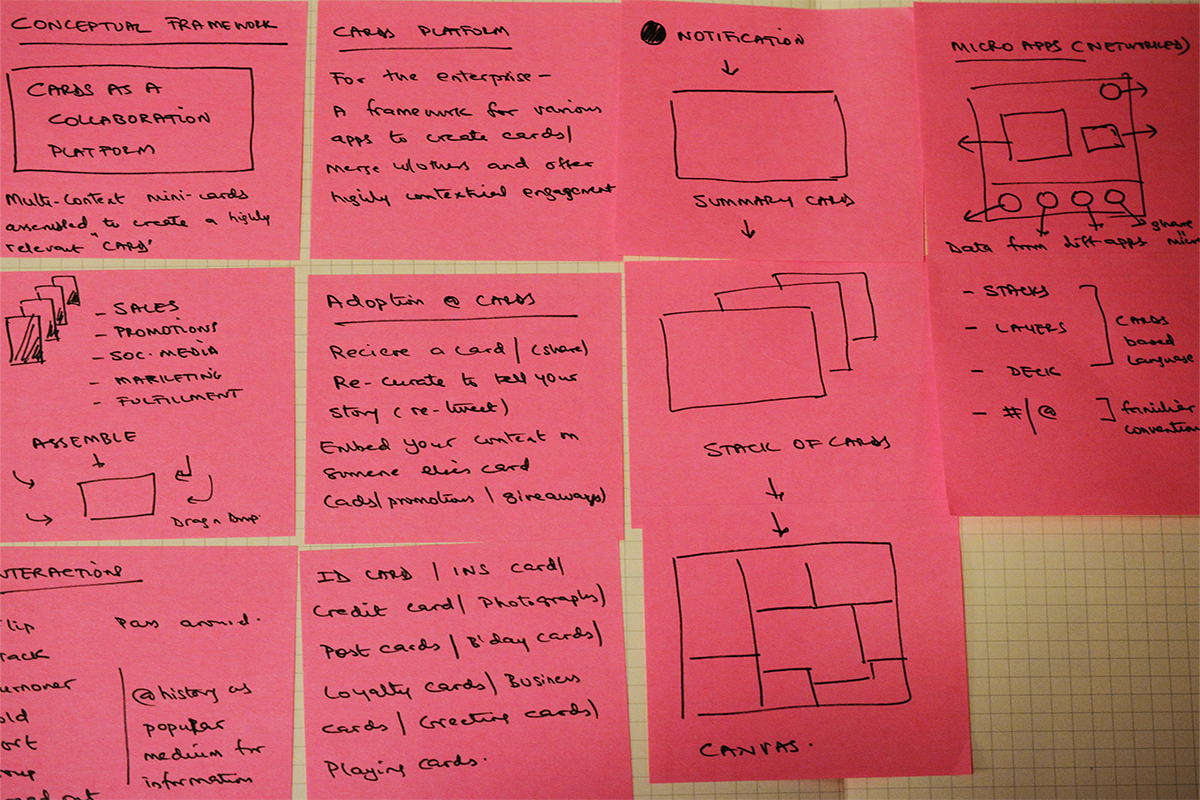 CONCEPTUAL FRAMEWORK
CARDS AS A
COLLABORATION
PLATFORM
Multi-context mini-cards
assembled to create a highly
relevant "CARD"
CARDS PLATFORM
For the enterprise -
A framework for various
apps to create cards/
merge w/others and offer
highly contextual engagement
NOTIFICATION
SUMMARY CARDS
MICRO APPS (NETWORKED)
Data from diff apps
share
- SALES
- PROMOTIONS
- SOC. MEDIA
- MARKETING
- FULFILLMENT
ASSEMBLE
Drag n Drop.
Adoption @ CARDS
Recieve a card | (share)
Re-curate to tell your
story (re-tweet)
Embed your content on
someone elses card
(ads/promotions | giveaways)
STACK OF CARDS
- STACKS
- LAYERS
- DECK
- #/@
CARDS
based
language
familiar
convention
NTERACTIONS
lip
Pass around.
rack
urnover
old
ort
roup
@history as
popular
medium for
information
ID CARD | INS card/
Credit card/ Photographs/
Post cards / B'day cards/
Loyalty cards/ Business
cards / Greeting cards/
Playing cards.
CANVAS.